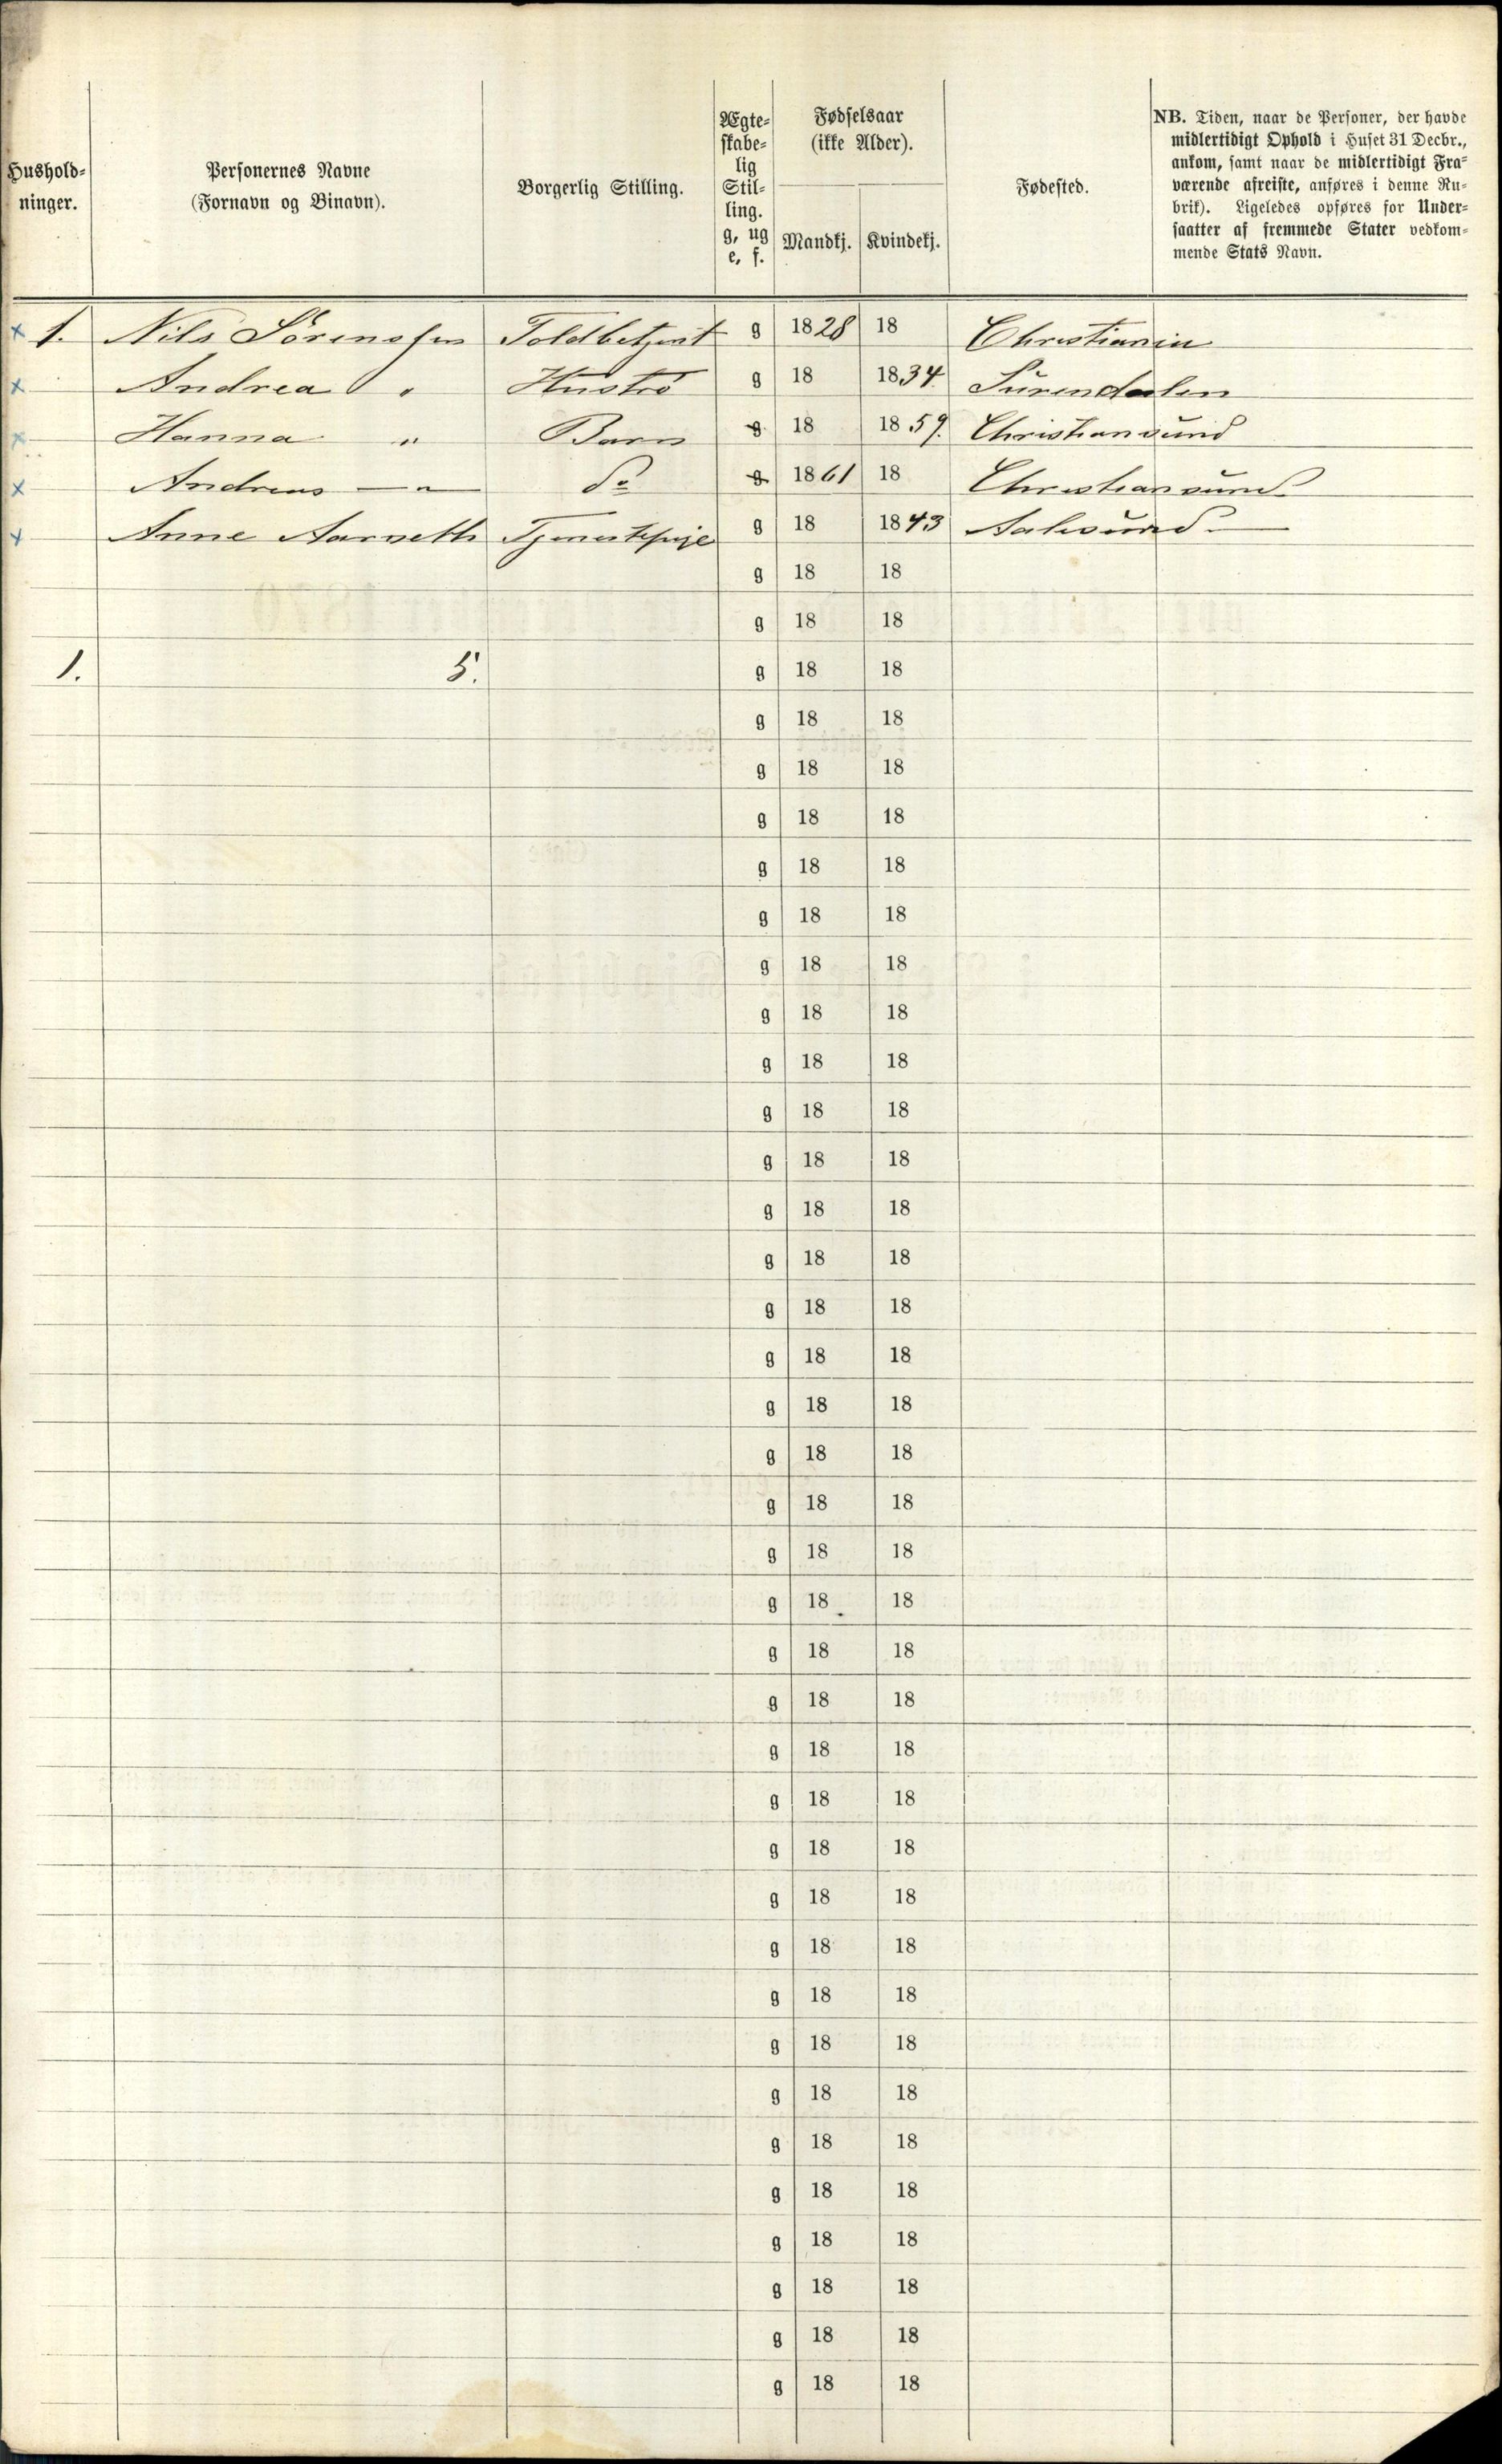 Hushold-
ninger.
Personernes Navne
(Fornavn og Binavn).
Borgerlig Stilling.
Ægte-
skabe-
lig
Stil-
ling.
g, ug
e, f.
Fødselsaar
(ikke Alder).
Mandkj. Kvindekj.
Fødested.
NB. Tiden, naar de Personer, der havde
midlertidigt Ophold i Huset 31 Decbr.,
ankom, samt naar de midlertidigt Fra-
værende afreiste, anføres i denne Ru-
brik). Ligeledes opføres for Under-
saatter af fremmede Stater vedkom-
mende Stats Navn.
x 1. Nils Sörenssen Toldbetjent g 1828 18 Christiania
x Andrea " Hustro g 18 1834 Surendalen
x Hanna " Barn g 18 1859. Christiansund
x Andreas — " — do g 1861 18 Christiansund
x Anne Aarseth Tjenestepige g 18 1843 Aalesund
g 18 18
g 18 18
1. 5. g 18 18
g 18 18
g 18 18
g 18 18
g 18 18
g 18 18
g 18 18
g 18 18
g 18 18
g 18 18
g 18 18
g 18 18
g 18 18
g 18 18
g 18 18
g 18 18
g 18 18
g 18 18
g 18 18
g 18 18
g 18 18
g 18 18
g 18 18
g 18 18
g 18 18
g 18 18
g 18 18
g 18 18
g 18 18
g 18 18
g 18 18
g 18 18
g 18 18
g 18 18
g 18 18
g 18 18